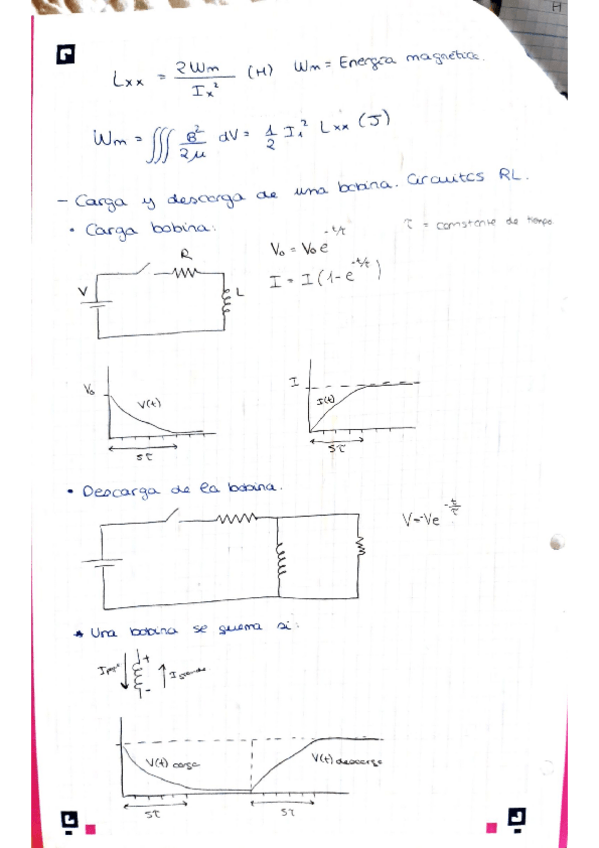 H
Lxx = 2Wm / Ix² (H) Wm = Energía magnética.
Wm = ∭ B²/2μ dV = 1/2 I₁² Lxx (J)
- Carga y descarga de una bobina. Circuitos RL.
• Carga bobina:
V₀ = V₀ e^(-t/τ) τ = constante de tiempo
I = I (1 - e^(-t/τ))
R
V
L
V₀ V(t) 5τ
I I(t) 5τ
• Descarga de la bobina.
V = -Ve^(-t/τ)
* Una bobina se quema si:
+
-
V(t) carga V(t) descarga
5τ 5τ